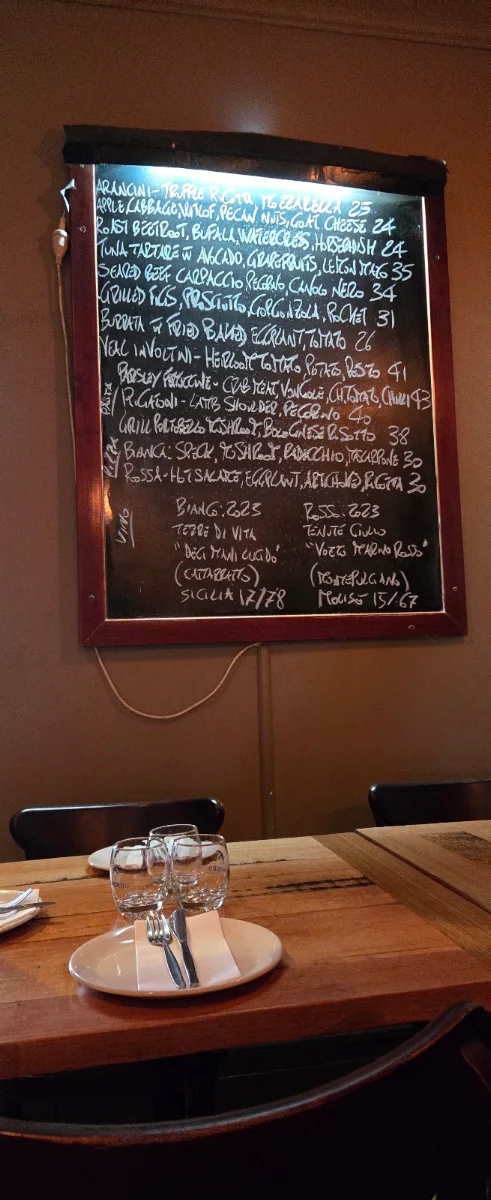 ARANCINI - TRUFFLE RICOTTA, MOZZARELLA 25
APPLE, CABBAGE, WITLOF, PECAN NUTS, GOAT CHEESE 24
ROAST BEETROOT, BUFALA, WATERCRESS, HORSERADISH 24
TUNA TARTARE W AVOCADO, GRAPEFRUITS, LEMON MAYO 35
SEARED BEEF CARPACCIO PECORINO, CAVOLO NERO 34
GRILLED FIGS, PROSCIUTTO, GORGONZOLA, ROCKET 31
BURRATA W FRIED BAKED EGGPLANT, TOMATO 26
VEAL INVOLTINI - HEIRLOOM TOMATO, POTATO, PESTO 41
PASTA
PARSLEY FETTUCCINE - CRAB MEAT, VONGOLE, CH. TOMATO, CHILLI 43
RIGATONI - LAMB SHOULDER, PECORINO 40
GRILL PORTOBELLO MUSHROOM, BOLOGNESE RISOTTO 38
PIZZA
BIANCA: SPECK, MUSHROOM, RADICCHIO, MASCARPONE 30
ROSSA - HOT SALAME, EGGPLANT, ARTICHOKE, RICOTTA 30
VINO
BIANCO 2023
TERRE DI VITA
(CATARRATTO)
SICILIA 17/78
ROSSO 2023
TENUTE GIULIO
(MONTEPULCIANO)
MOLISE 15/67